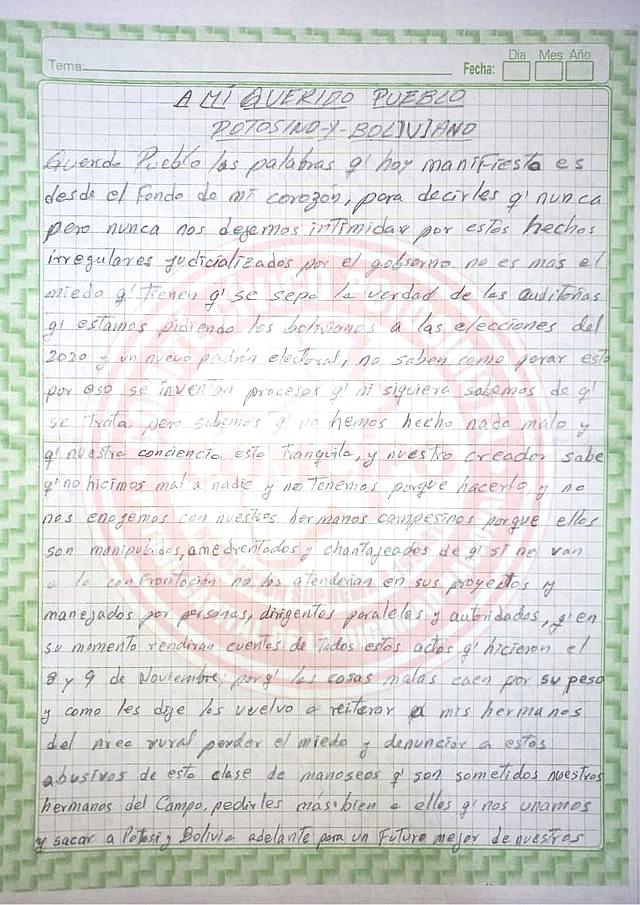 Tema:
Fecha:
Dia Mes Año
A MÍ QUERIDO PUEBLO
POTOSINO-Y-BOLIVIANO
Querido Pueblo las palabras q' hoy manifiesto es
desde el Fondo de mi corozón, para decirles q' nunca
pero nunca nos dejemos intimidar por estos hechos
irregulares judicializados por el gobierno no es mas el
miedo q' tienen q' se sepa la verdad de las auditorias
q' estamos pidiendo los bolivianos a las elecciones del
2020 y un nuevo padrón electoral, no saben como parar esto
por eso se inventan procesos q' ni siquiera sabemos de q'
se trata pero sabemos q' no hemos hecho nada malo y
q' nuestra conciencia esta Tranquila, y nuestro creador sabe
q' no hicimos mal a nadie y no tenemos porque hacerlo y no
nos enojemos con nuestros hermanos campesinos porque ellos
son manipulados, amedrentados y chantajeados de q' si no van
a la confrontación no los atenderian en sus proyectos y
manejados por personas, dirigentes paralelos y autoridades, q' en
su momento rendiran cuentas de todos estos actos q' hicieron el
8 y 9 de Noviembre; porq' las cosas malas caen por su peso
y como les dije los vuelvo a reiterar a mis hermanos
del Area rural perder el miedo y denunciar a estos
abusivos de esta clase de manoseos q' son sometidos nuestros
hermanos del Campo, pedirles más bien a ellos q' nos unamos
y sacar a Potosi y Bolivia adelante para un Futuro mejor de nuestros